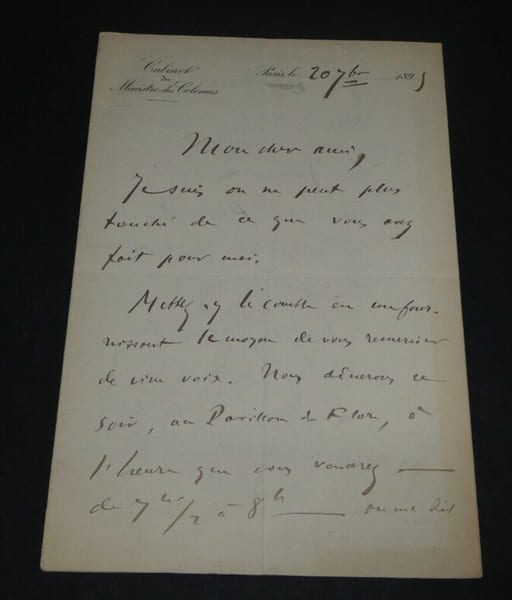 Cabinet
du
Ministre des Colonies
Paris, le 20 7bre 1895
Mon cher ami,
Je suis on ne peut plus
touché de ce que vous avez
fait pour moi.
Mettez-y le comble en me four-
nissant le moyen de vous remercier
de vive voix. Nous dînerons ce
soir, au Pavillon de Flore, à
l'heure que vous voudrez —
de 7h 1/2 à 8h — on me dit